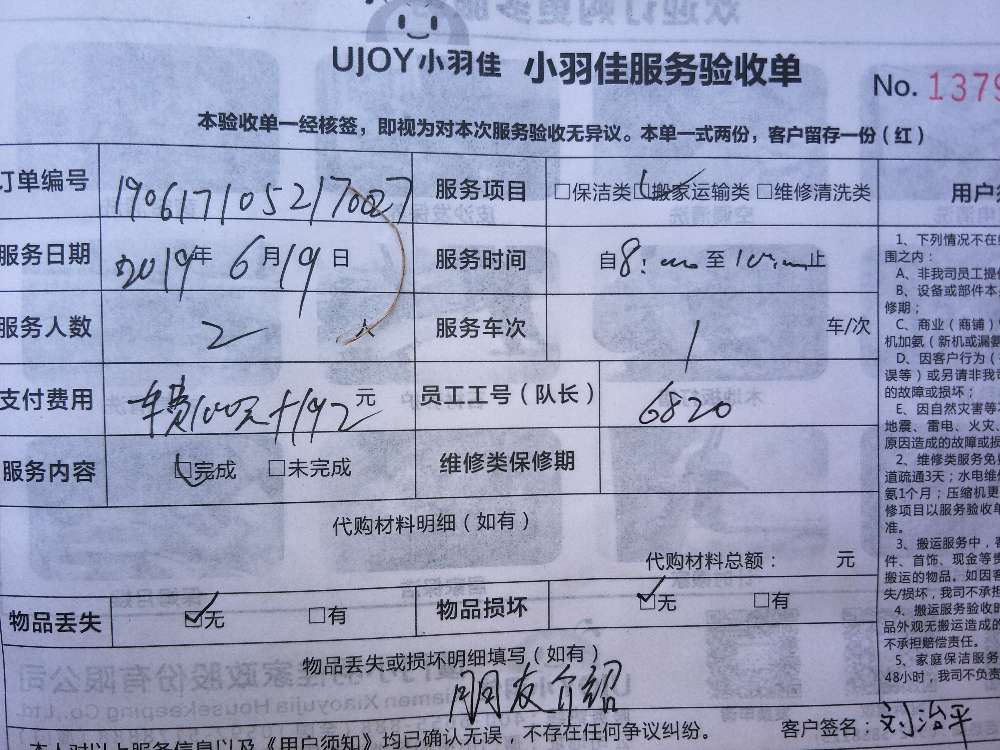 UJOY小羽佳 小羽佳服务验收单 No. 1379
本验收单一经核签，即视为对本次服务验收无异议。本单一式两份，客户留存一份（红）
订单编号 1906171052170027 服务项目 □保洁类 ☑搬家运输类 □维修清洗类
服务日期 2019年6月19日 服务时间 自8:00至10:00止
服务人数 2 人 服务车次 1 车/次
支付费用 车费100元+192元 员工工号（队长） 6820
服务内容 ☑完成 □未完成 维修类保修期
代购材料明细（如有）
代购材料总额： 元
物品丢失 ☑无 □有 物品损坏 ☑无 □有
物品丢失或损坏明细填写（如有）
朋友介绍
本人对以上服务信息以及《用户须知》均已确认无误，不存在任何争议纠纷。
客户签名：刘治平
用户
1、下列情况不在
围之内：
A、非我司员工提
B、设备或部件本
修期；
C、商业（商铺）
机加氨（新机或漏氨
D、因客户行为（
误等）或另请非我司
的故障或损坏；
E、因自然灾害等
地震、雷电、火灾、
原因造成的故障或损
2、维修类服务免
道疏通3天；水电维
氨1个月；压缩机更
修项目以服务验收单
准。
3、搬运服务中，
件、首饰、现金等贵
搬运的物品。如因客
失/损坏，我司不承担
4、搬运服务验收时
品外观无搬运造成的
不承担赔偿责任。
5、家庭保洁服务
48小时，我司不负责